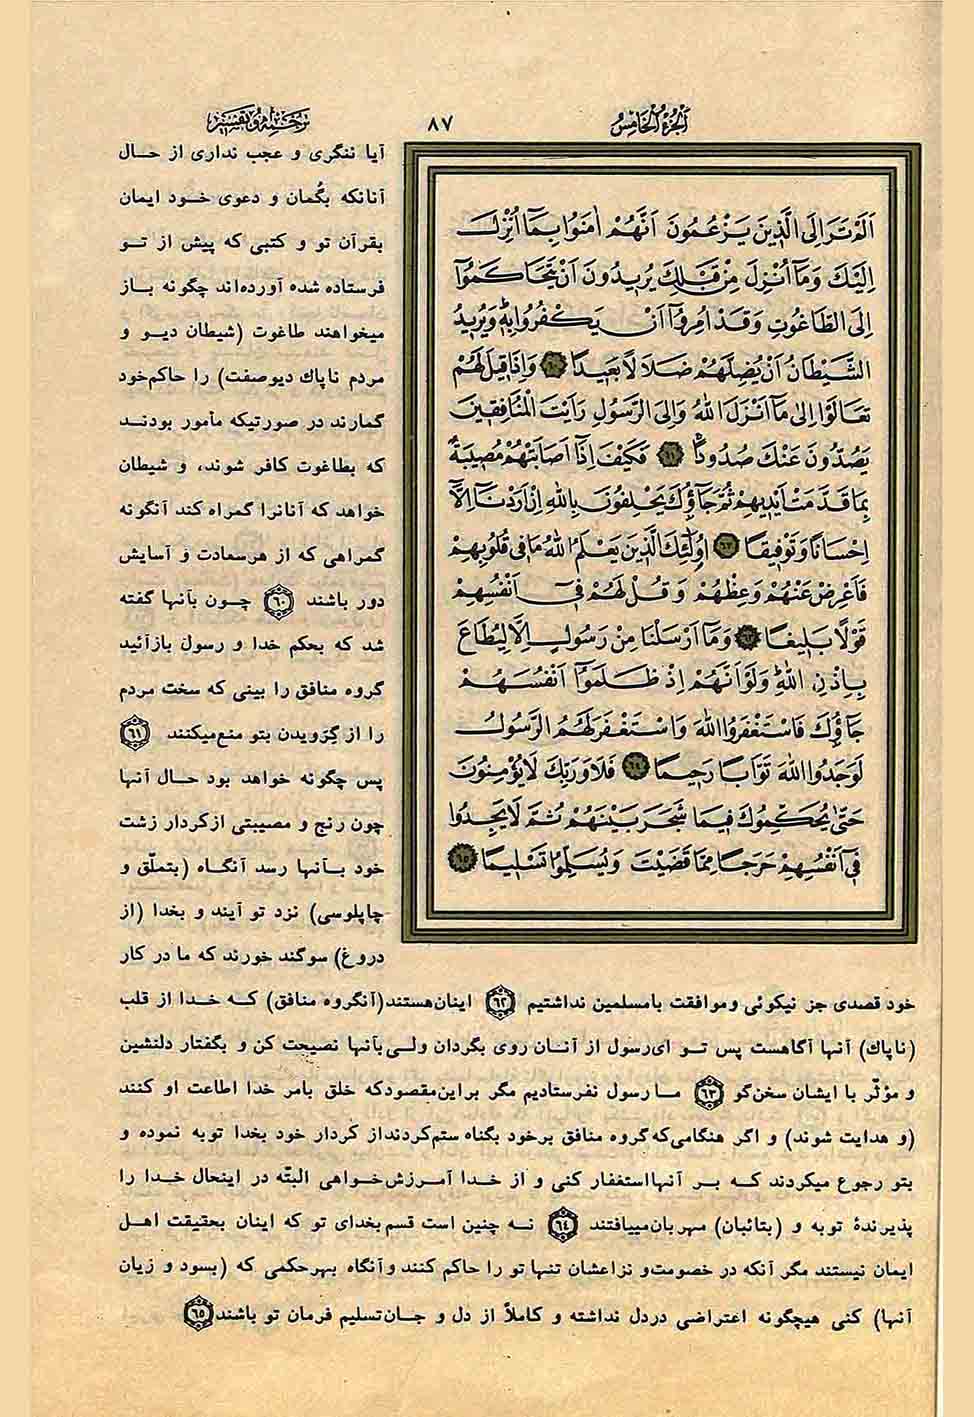 اَلْجُزْءُ الْخَامِسُ
٨٧
ترجمه و تفسیر
اَلَمْ تَرَ اِلَى الَّذِينَ يَزْعُمُونَ اَنَّهُمْ اٰمَنُوا بِمَٓا اُنْزِلَ
اِلَيْكَ وَمَٓا اُنْزِلَ مِنْ قَبْلِكَ يُرِيدُونَ اَنْ يَتَحَاكَمُٓوا
اِلَى الطَّاغُوتِ وَقَدْ اُمِرُٓوا اَنْ يَكْفُرُوا بِهِ وَيُرِيدُ
الشَّيْطَانُ اَنْ يُضِلَّهُمْ ضَلَالًا بَعِيدًا ٦٠ وَاِذَا قِيلَ لَهُمْ
تَعَالَوْا اِلٰى مَٓا اَنْزَلَ اللّٰهُ وَاِلَى الرَّسُولِ رَاَيْتَ الْمُنَافِقِينَ
يَصُدُّونَ عَنْكَ صُدُودًا ٦١ فَكَيْفَ اِذَٓا اَصَابَتْهُمْ مُصِيبَةٌ
بِمَا قَدَّمَتْ اَيْدِيهِمْ ثُمَّ جَٓاؤُكَ يَحْلِفُونَ بِاللّٰهِ اِنْ اَرَدْنَٓا اِلَّٓا
اِحْسَانًا وَتَوْفِيقًا ٦٢ اُولٰٓئِكَ الَّذِينَ يَعْلَمُ اللّٰهُ مَا فِى قُلُوبِهِمْ
فَاَعْرِضْ عَنْهُمْ وَعِظْهُمْ وَقُلْ لَهُمْ فِٓى اَنْفُسِهِمْ
قَوْلًا بَلِيغًا ٦٣ وَمَٓا اَرْسَلْنَا مِنْ رَسُولٍ اِلَّا لِيُطَاعَ
بِاِذْنِ اللّٰهِ وَلَوْ اَنَّهُمْ اِذْ ظَلَمُٓوا اَنْفُسَهُمْ
جَٓاؤُكَ فَاسْتَغْفَرُوا اللّٰهَ وَاسْتَغْفَرَ لَهُمُ الرَّسُولُ
لَوَجَدُوا اللّٰهَ تَوَّابًا رَحِيمًا ٦٤ فَلَا وَرَبِّكَ لَا يُؤْمِنُونَ
حَتّٰى يُحَكِّمُوكَ فِيمَا شَجَرَ بَيْنَهُمْ ثُمَّ لَا يَجِدُوا
فِٓى اَنْفُسِهِمْ حَرَجًا مِمَّا قَضَيْتَ وَيُسَلِّمُوا تَسْلِيمًا ٦٥
آیا ننگری و عجب نداری از حال
آنانکه بگُمان و دعوی خود ایمان
بقرآن تو و کتبی که پیش از تو
فرستاده شده آورده‌اند چگونه باز
میخواهند طاغوت (شیطان دیو و
مردم ناپاك دیوصفت) را حاکم‌خود
گمارند در صورتیکه مأمور بودند
که بطاغوت کافر شوند، و شیطان
خواهد که آنانرا گمراه کند آنگونه
گمراهی که از هرسعادت و آسایش
دور باشند ٦٠ چون بآنها گفته
شد که بحکم خدا و رسول بازآئید
گروه منافق را بینی که سخت مردم
را از گِرَویدن بتو منع‌میکنند ٦١
پس چگونه خواهد بود حال آنها
چون رنج و مصیبتی ازکردار زشت
خود بآنها رسد آنگاه (بتملّق و
چاپلوسی) نزد تو آیند و بخدا (از
دروغ) سوگند خورند که ما در کار
خود قصدی جز نیکوئی وموافقت بامسلمین نداشتیم ٦٢ اینان‌هستند (آنگروه منافق) که خدا از قلب
(ناپاك) آنها آگاهست پس تو ای‌رسول از آنان روی بگردان ولی‌بآنها نصیحت کن و بگفتار دلنشین
و مؤثّر با ایشان سخن‌گو ٦٣ ما رسول نفرستادیم مگر براین‌مقصودکه خلق بامر خدا اطاعت او کنند
(و هدایت شوند) و اگر هنگامی‌که‌گروه منافق برخود بگناه ستم‌کردنداز کردار خود بخدا توبه نموده و
بتو رجوع میکردند که بر آنهااستغفار کنی و از خدا آمرزش‌خواهی البتّه در اینحال خدا را
پذیرندۀ توبه و (بتائبان) مهربان‌مییافتند ٦٤ نه چنین است قسم بخدای تو که اینان بحقیقت اهل
ایمان نیستند مگر آنکه در خصومت‌و نزاعشان تنهاتو را حاکم کنند وآنگاه بهرحکمی که (بسود و زیان
آنها) کنی هیچگونه اعتراضی دردل نداشته و کاملاً از دل و جان‌تسلیم فرمان تو باشند ٦٥